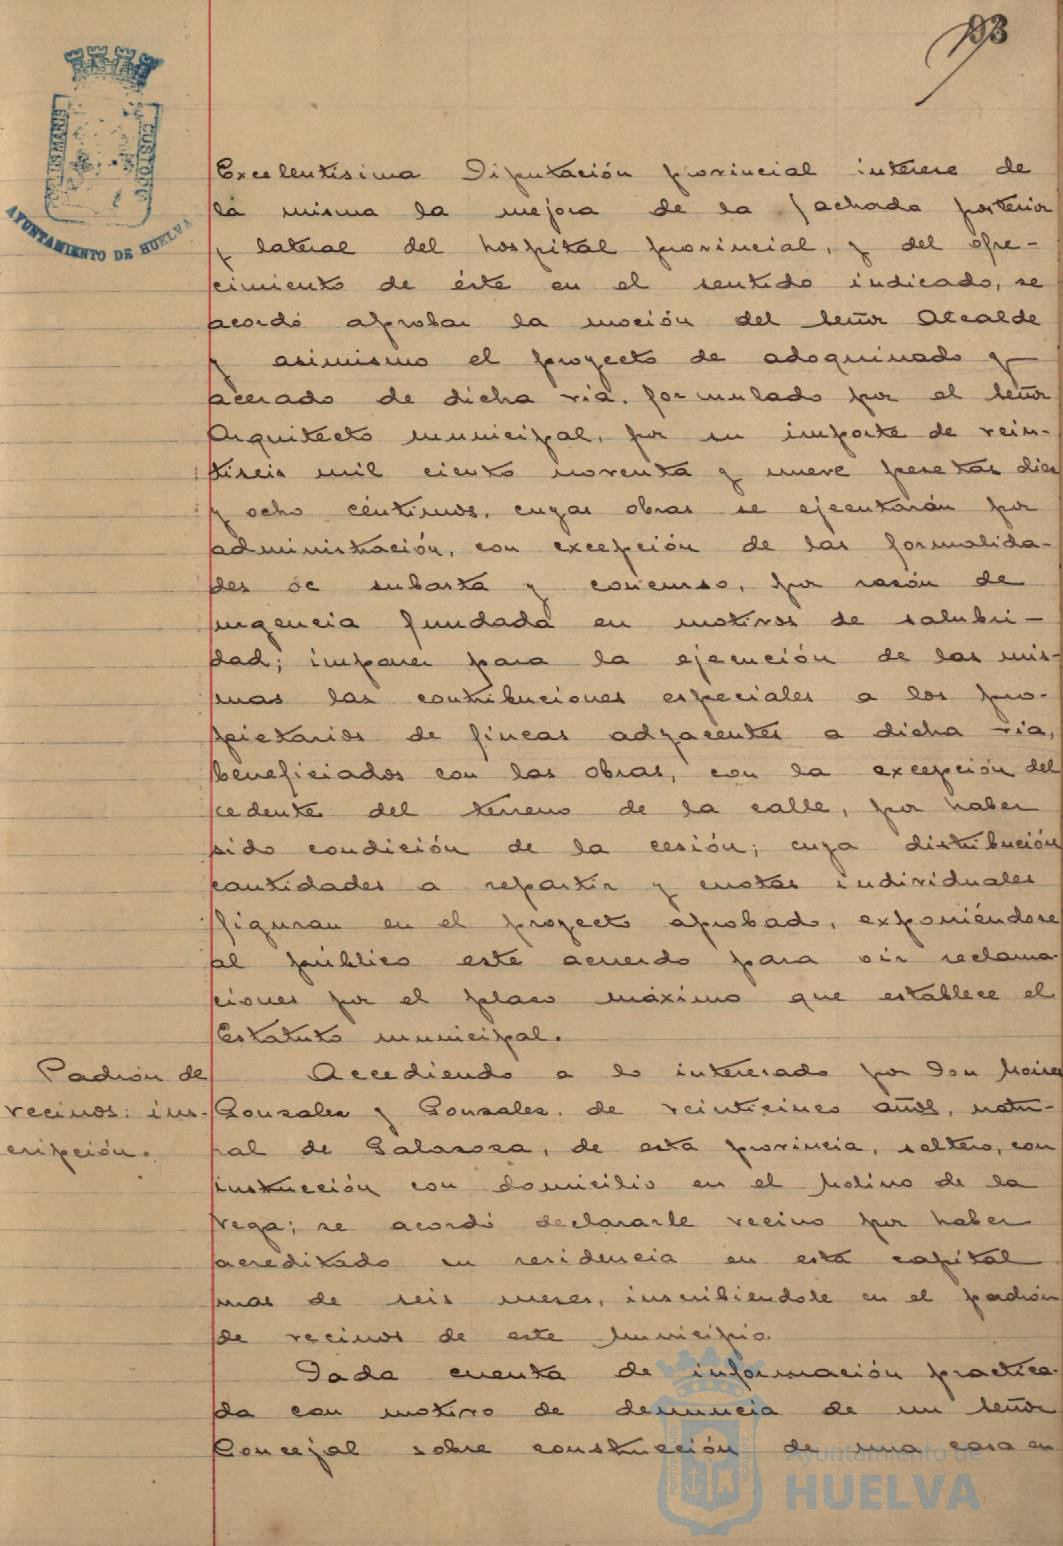 93
AYUNTAMIENTO DE HUELVA
Excelentísima Diputación provincial interese de
la misma la mejora de la fachada posterior
y lateral del hospital provincial, y del ofre-
cimiento de éste en el sentido indicado, se
acordó aprobar la moción del Señor Alcalde
y asimismo el proyecto de adoquinado y
acerado de dicha vía. formulado por el Señor
Arquitecto municipal, por su importe de vein-
tiseis mil ciento noventa y nueve pesetas diez
y ocho céntimos, cuyas obras se ejecutarán por
administración, con excepción de las formalida-
des de subasta y concurso, por razón de
urgencia fundada en motivos de salubri-
dad; imponer para la ejecución de las mis-
mas las contribuciones especiales a los pro-
pietarios de fincas adyacentes a dicha vía,
beneficiados con las obras, con la excepción del
cedente del terreno de la calle, por haber
sido condición de la cesión; cuya distribución
cantidades a repartir y cuotas individuales
figuran en el proyecto aprobado, exponiéndose
al público este acuerdo para oir reclama-
ciones por el plazo máximo que establece el
Estatuto municipal.
Padrón de
vecinos: ins-
cripción.
Accediendo a lo interesado por Don Moises
Gonzalez y Gonzalez, de veinticinco años, natu-
ral de Galaroza, de esta provincia, soltero, con
instrucción con domicilio en el Molino de la
Vega; se acordó declararle vecino por haber
acreditado su residencia en esta capital
mas de seis meses, inscribiendole en el padrón
de vecinos de este Municipio.
Dada cuenta de información practica-
da con motivo de denuncia de un Señor
Concejal sobre construcción de una casa en
Ayuntamiento de
HUELVA